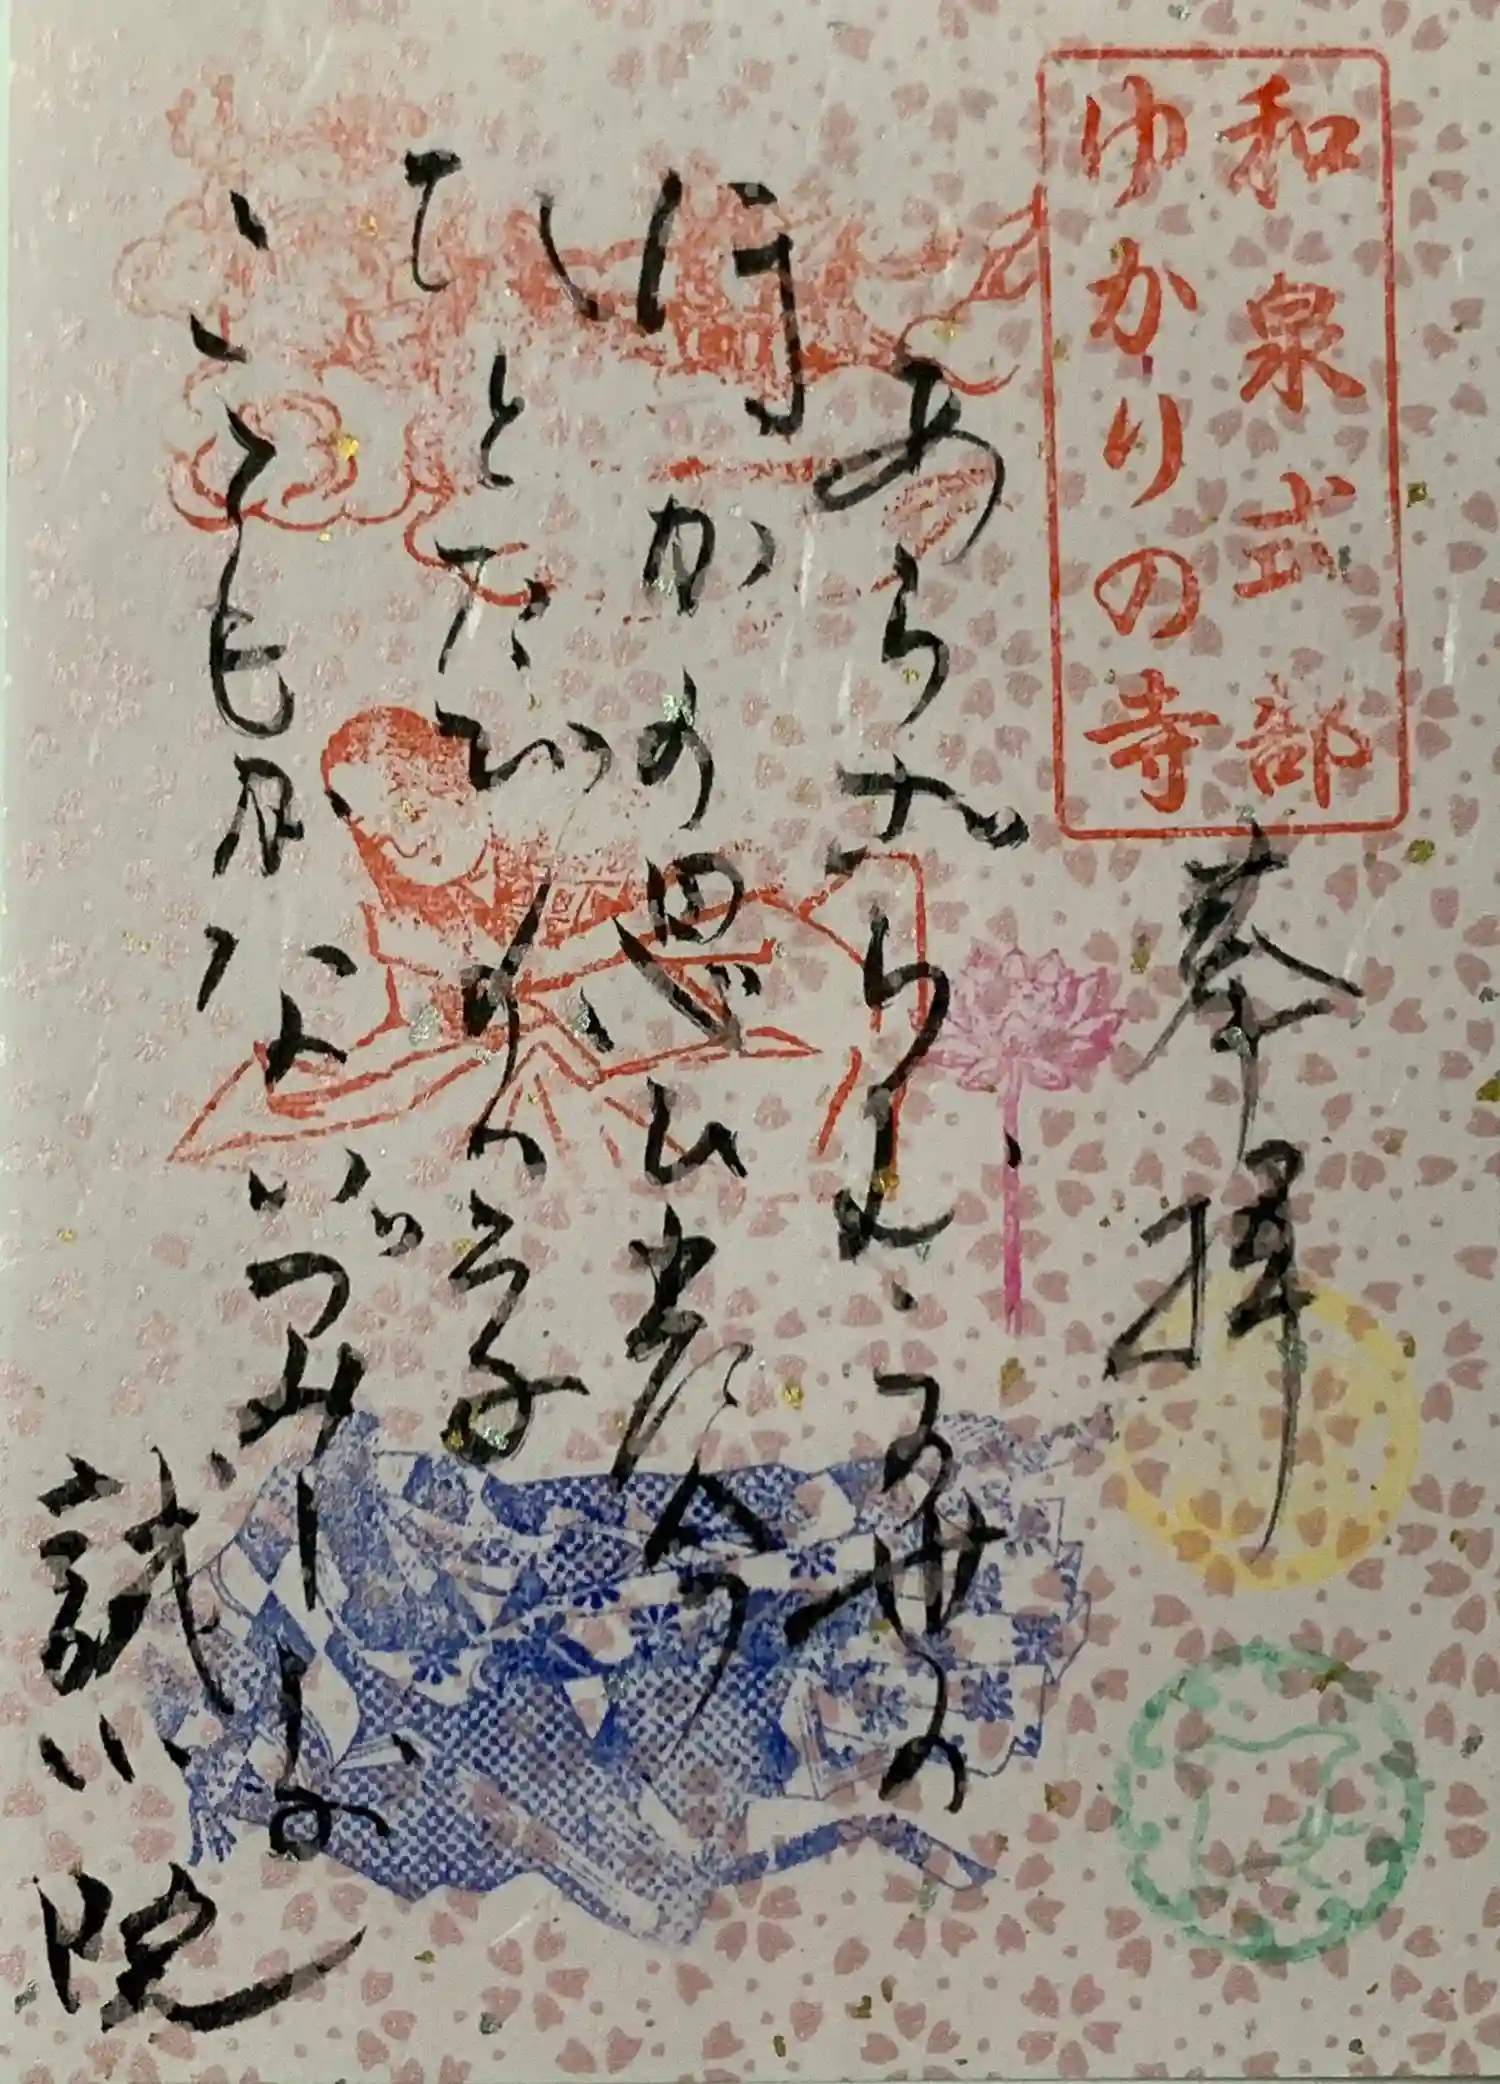 和泉式部
ゆかりの寺
奉拝
あらざらむこの世の
ほかの思ひ出に今
ひとたびの逢ふ
こともがな
いづみしきぶ
誠心院